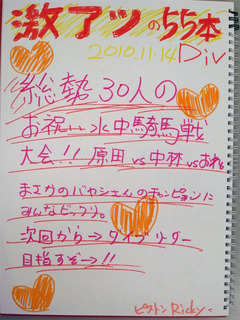 激アツの55本
2010.11.14 Div
総勢30人の
お祝い水中騎馬戦
大会!! 原田vs中林vsおれ
まさかのバヤシさんのチャンピョンに
みんなビックリ。
次回から→ダイブリーダー
目指すぞー!!
ピストン Ricky